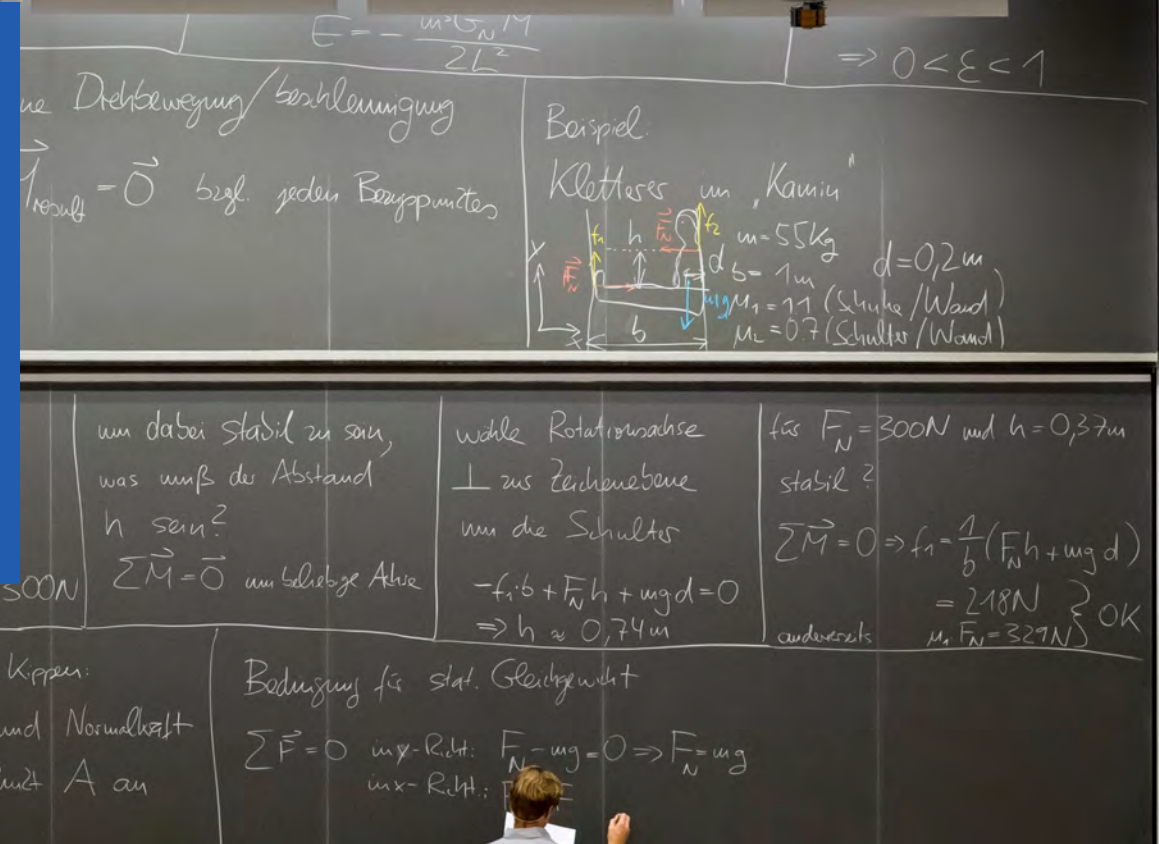 E = - m³G_N²M / 2L²
⇒ 0 < ε < 1
ne Drehbewegung/beschleunigung
M⃗_result = 0⃗ bzgl. jeden Bezugspunktes
Beispiel:
Kletterer im „Kamin"
f₁ h F⃗_N f₂ m = 55Kg
y F⃗_N d b = 1m d = 0,2m
mg μ₁ = 1.1 (Schuhe/Wand)
x b μ₂ = 0.7 (Schulter/Wand)
300N
um dabei stabil zu sein,
was muß der Abstand
h sein?
∑M⃗ = 0⃗ um beliebige Achse
wähle Rotationsachse
⊥ zur Zeichenebene
um die Schulter
-f₁·b + F_N h + mgd = 0
⇒ h ≈ 0,74m
für F_N = 300N und h = 0,37m
stabil?
∑M⃗ = 0 ⇒ f₁ = 1/b (F_N h + mg d)
= 218N } OK
andererseits μ₁ F_N = 329N
Kippen:
und Normalkraft
A an
Bedingung für stat. Gleichgewicht
∑F⃗ = 0 in y-Richt: F_N - mg = 0 ⇒ F_N = mg
in x-Richt.: